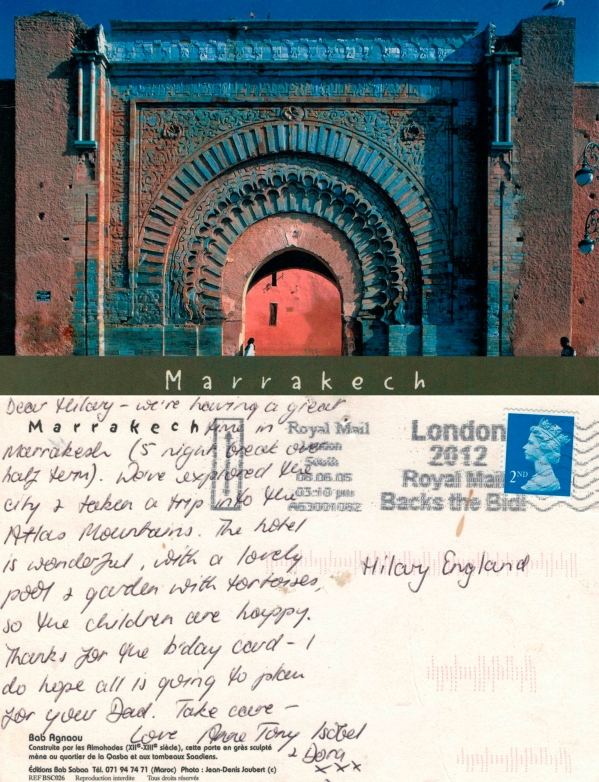 Marrakech
Dear Hilary - we're having a great
Marrakech
time in
Marrakesh (5 night break over
half term). We've explored the
city & taken a trip into the
Atlas Mountains. The hotel
is wonderful, with a lovely
pool & garden with tortoises,
so the children are happy.
Thanks for the b'day card - I
do hope all is going to plan
for your Dad. Take care -
Love Anne Tony Isobel
& Dora
xxx
Royal Mail
London
South
06.06.05
03:10 pm
A63001082
London
2012
Royal Mail
Backs the Bid!
2ND
Hilary England
Bab Agnaou
Construite par les Almohades (XIIe-XIIIe siècle), cette porte en grès sculpté
mène au quartier de la Qasba et aux tombeaux Saadiens.
Éditions Bab Sabaa Tél. 071 94 74 71 (Maroc) Photo : Jean-Denis Joubert (c)
REF BSC026 Reproduction interdite Tous droits réservés